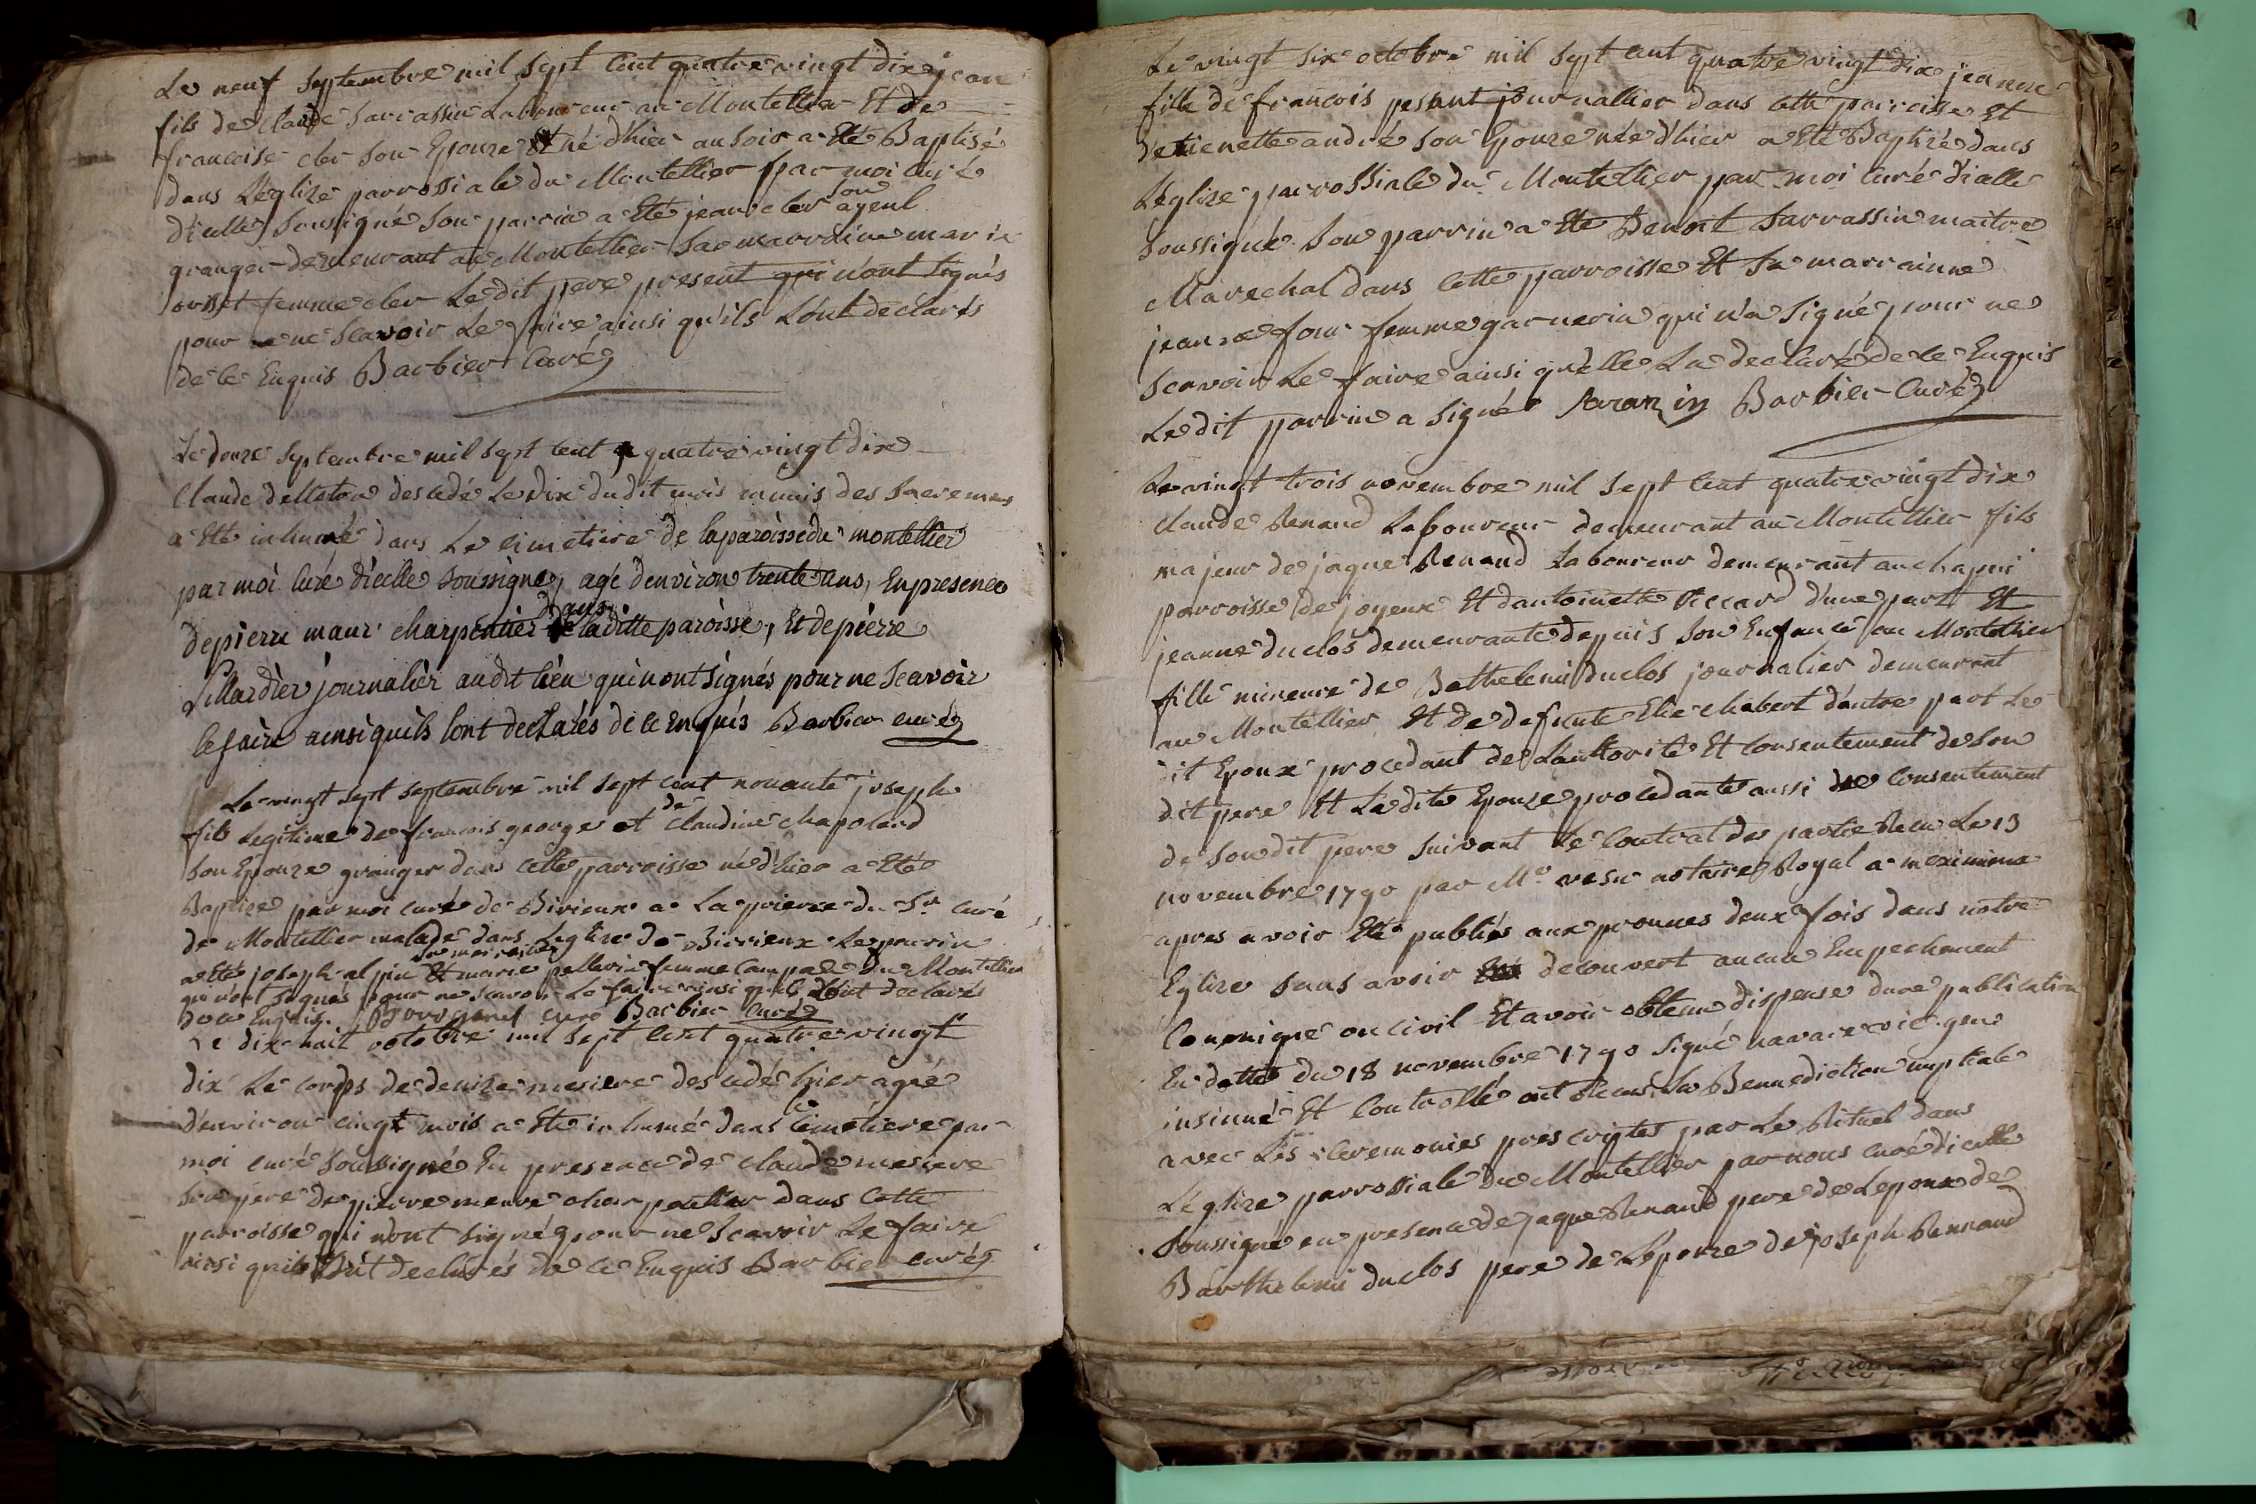 Le neuf septembre mil sept cent quatre vingt dix jean
fils de Claude Sarrassin Laboureur au Montellier Et de
francoise cler son Epouze né d'hier au soir a Eté Baptisé
dans L'Eglize parrossiale du Montellier par moi Curé
d'icelle soussigné son parrin a Eté jean cler son ayeul
granger demeurant au Montellier Sa marraine marie
orsset femme cler Le dit pere present qui n'ont signés
pour ne scavoir Le faire ainsi qu'ils L'ont declarés
de ce Enquis Barbier Curé
Le douze septembre mil sept cent quatre vingt dix
Claude delleton descedé Le dix du dit mois munis des sacremens
a Eté inhumé dans Le cimetiere de la paroisse du montellier
par moi Curé d'icelle soussigné, agé denviron trente ans, En presence
de pierre maur charpentier dans laditte paroisse, Et de pierre
Lillardier journalier audit lieu qui n'ont signés pour ne Scavoir
le faire ainsi quils lont declarés de ce Enquis Barbier curé
Le vingt sept septembre mil sept cent nonante joseph
fils Legitime de francois george et de Claudine chapoland
son Epouze granger dans cette parroisse né d'hier a Eté
Baptize par moi curé de Birieux a La priere du Sr curé
de Montellier malade dans L'eglize de Birrieux Le parrin
a Eté joseph alpin Et sa marraine marie pellerin femme du Montellier
qui n'ont signés pour ne scavoir Le faire ainsi quils L'ont declarés
de ce Enquis. curé Barbier curé
Le dix huit octobre mil sept cent quatre vingt
dix Le corps de denize mesiere descedé hier agné
d'environ cinqt mois a Eté inhumé dans Ce cimetiere par
moi curé soussigné En presence de claude mesiere
son pere de pierre meure charpentier dans cette
parroisse qui n'ont signé pour ne scavoir Le faire
ainsi quils L'ont declarés de ce Enquis Barbier curé
Le vingt six octobre mil sept cent quatre vingt dix jeanne
fille de francois pesant journallier dans cette parroisse Et
de tienette andré son Epouze née d'hier a Eté Baptizé dans
L'eglize parrossiale du Montellier par moi curé d'icelle
soussigné son parrin a Eté Benoit Sarrassin maitre
Marechal dans cette parroisse Et Sa marrainne
jeanne four femme garnerin qui n'a signé pour ne
scavoir Le faire ainsi qu'elle L'a declaré de ce Enquis
Le dit parrin a signé Sarazin Barbier Curé
Le vingt trois novembre mil sept cent quatre vingt dix
claude Renand Laboureur demeurant au Montellier fils
majeur de jaque Renand Laboureur demeurant au chapui
parroisse de joyeux Et dantoinette Viccard d'une part Et
jeanne duclos demeurante depuis son Enfance au Montellier
fille mineure de Bathelemi duclos journalier demeurant
au Montellier Et de defunte Elie chabert d'autre part Le
dit Epoux procedant de L'auttorité Et Consentement de son
dit pere Et La dite Epouze procedante aussi de Consentement
de son dit pere suivant Le Contrat de partie Recu Le 13
novembre 1790 par Me notaire Royal a meximieux
apres avoir Eté publiés aux pronnes deux fois dans notre
Eglize sans avoir decouvert aucun Empechement
Canonique ou civil Et avoir obtenu dispense d'une publication
En datte du 18 novembre 1790 signé navare vic. gen.
insinué Et Controllé ont Recus La Bennediction nuptiale
avec Les ceremonies prescriptes par Le Rituel dans
L'eglize parrossiale du Montellier par nous curé d'icelle
soussigné en presence de jaque Renand pere de Lepoux de
Barthelemi duclos pere de L'epouze de joseph Rennand